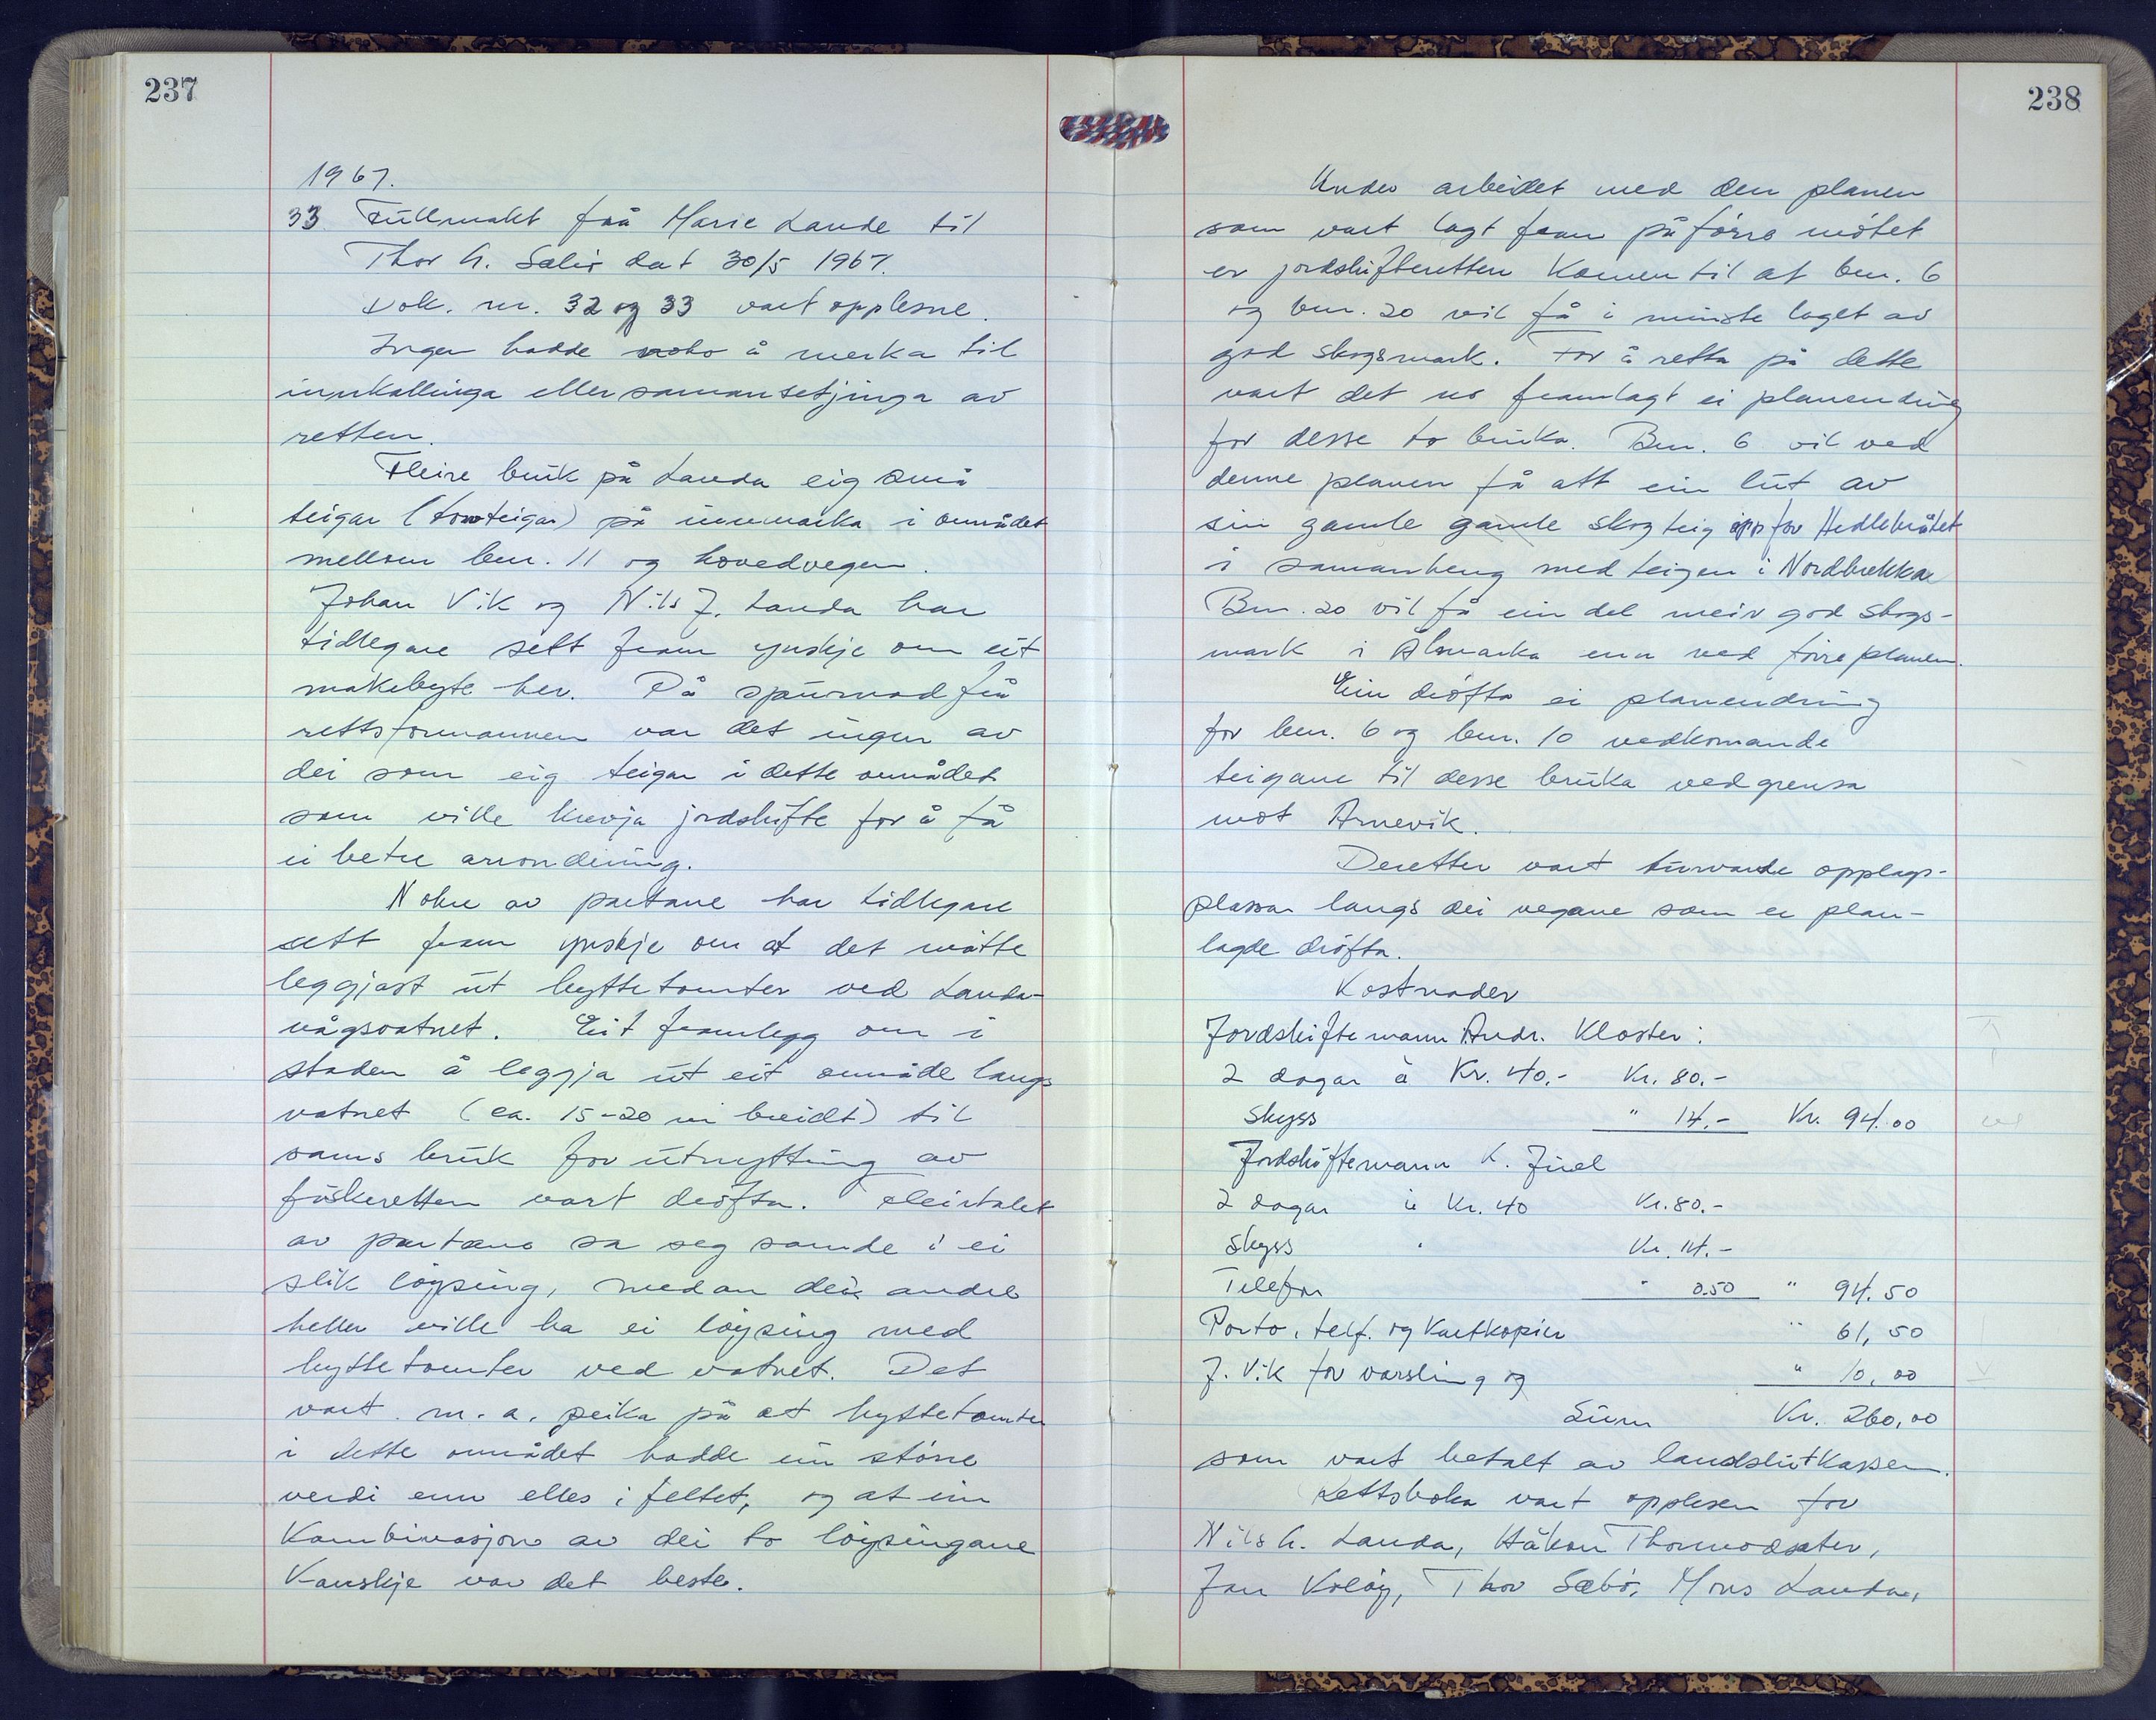 237
1967.
33. Fullmakt frå Marie Lande til
Thor A. Sæbø dat 30/5 1967.
Dok. nr. 32 og 33 vart opplesne.
Ingen hadde noko å merka til
innkallinga eller samansetjinga av
retten.
Fleire bruk på Landa eig små
teigar (tomteigar) på innmarka i området
mellom bnr. 11 og hovedvegen.
Johan Vik og Nils J. Landa har
tidlegare sett fram ynskje om eit
makebyte her. På spursmad frå
rettsformannen var det ingen av
dei som eig teigar i dette området
som ville krevja jordskifte for å få
ei betre arrondering.
Nokre av partane har tidlegare
sett fram ynskje om at det måtte
leggjast ut hyttetomter ved Landa-
vågsvatnet. Eit framlegg om i
staden å leggja ut eit område langs
vatnet (ca. 15-20 m breidt) til
sams bruk for utnytting av
fiskeretten vart drøfta. Fleirtalet
av partane sa seg samde i ei
slik løysing, medan dei andre
heller ville ha ei løysing med
hyttetomter ved vatnet. Det
vart m. a. peika på at hyttetomter
i dette området hadde ein større
verdi enn elles i feltet, og at ein
kombinasjon av dei to løysingane
kanskje var det beste.
238
Under arbeidet med den planen
som vart lagt fram på førre møtet
er jordskifteretten komen til at bnr. 6
og bnr. 20 vil få i minste laget av
god skogsmark. For å retta på dette
vart det no framlagt ei planendring
for desse to bruka. Bnr. 6 vil ved
denne planen få att ein lut av
sin gamle gamle skogteig opp for Hedlebråtet
i samanheng med teigen i Nordbrekka
Bnr. 20 vil få ein del meir god skogs-
mark i Almarka enn ved førre planen.
Ein drøfta ei planendring
for bnr. 6 og bnr. 10 vedkomande
teigane til desse bruka ved grensa
mot Arnevik.
Deretter vart turvande opplags-
plassar langs dei vegane som er plan-
lagde drøfta.
Kostnader
Jordskiftemann Andr. Kloster:
2 dagar à Kr. 40.- Kr. 80.-
Skyss " 14.- Kr. 94.00
Jordskiftemann K. Juel
2 dagar à Kr. 40 Kr. 80.-
Skyss Kr. 14.-
Telefon " 0.50 " 94.50
Porto, telf. og kartkopier " 61,50
J. Vik for varsling og " 10,00
Sum Kr. 260,00
som vart betalt av landskutkassen.
Rettsboka vart opplesen for
Nils A. Landa, Håkon Thormodsæter,
Jan Koløy, Thor Sæbø, Mons Landa,